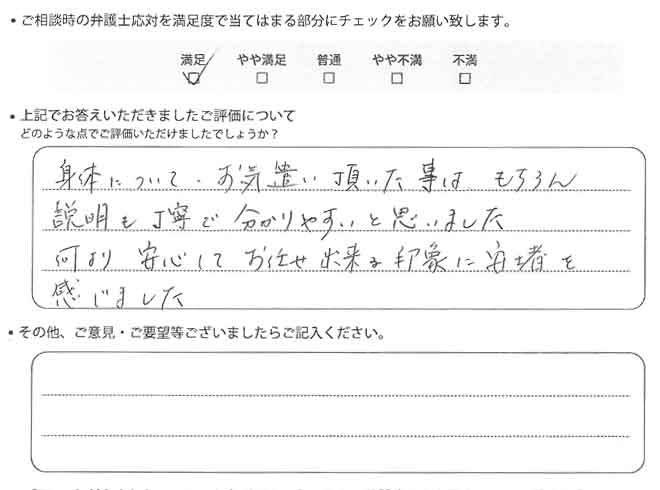 • ご相談時の弁護士応対を満足度で当てはまる部分にチェックをお願い致します。
満足 やや満足 普通 やや不満 不満
• 上記でお答えいただきましたご評価について
どのような点でご評価いただけましたでしょうか？
身体について、お気遣い頂いた事は もちろん
説明も丁寧で 分かりやすいと思いました
何より 安心して お任せ出来る印象に安堵を
感じました
• その他、ご意見・ご要望等ございましたらご記入ください。